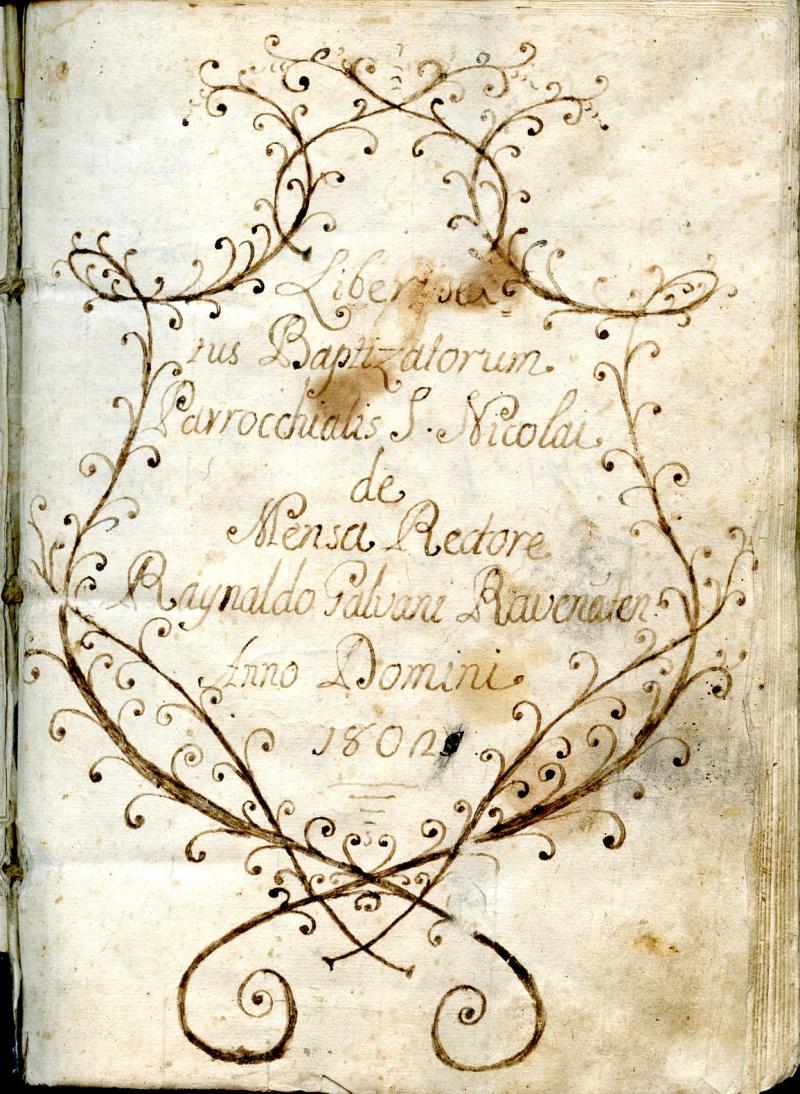 Liber sex=
tus Baptizatorum
Parrocchialis S. Nicolai
de
Mensa Rectore
Raynaldo Galvani Ravenaten
Anno Domini
1802